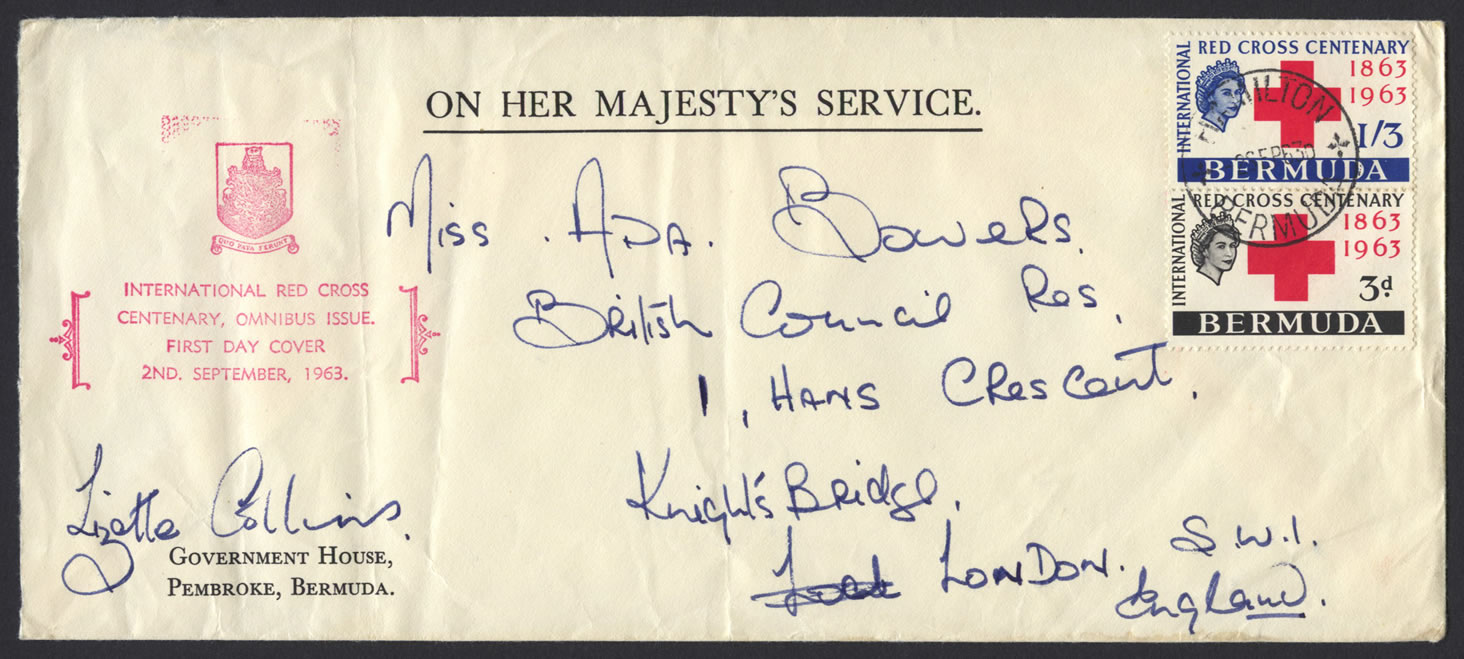 ON HER MAJESTY'S SERVICE.
QUO FATA FERUNT
INTERNATIONAL RED CROSS
CENTENARY, OMNIBUS ISSUE.
FIRST DAY COVER
2ND. SEPTEMBER, 1963.
Miss. ADA. Bowers.
British Council Res,
1, HANS Crescent,
Knight's Bridge,
LONDON. S.W.1.
England.
Lizette Collins.
GOVERNMENT HOUSE,
PEMBROKE, BERMUDA.
INTERNATIONAL
RED CROSS CENTENARY
1863
1963
1/3
BERMUDA
INTERNATIONAL
RED CROSS CENTENARY
1863
1963
3d
BERMUDA
HAMILTON
BERMUDA